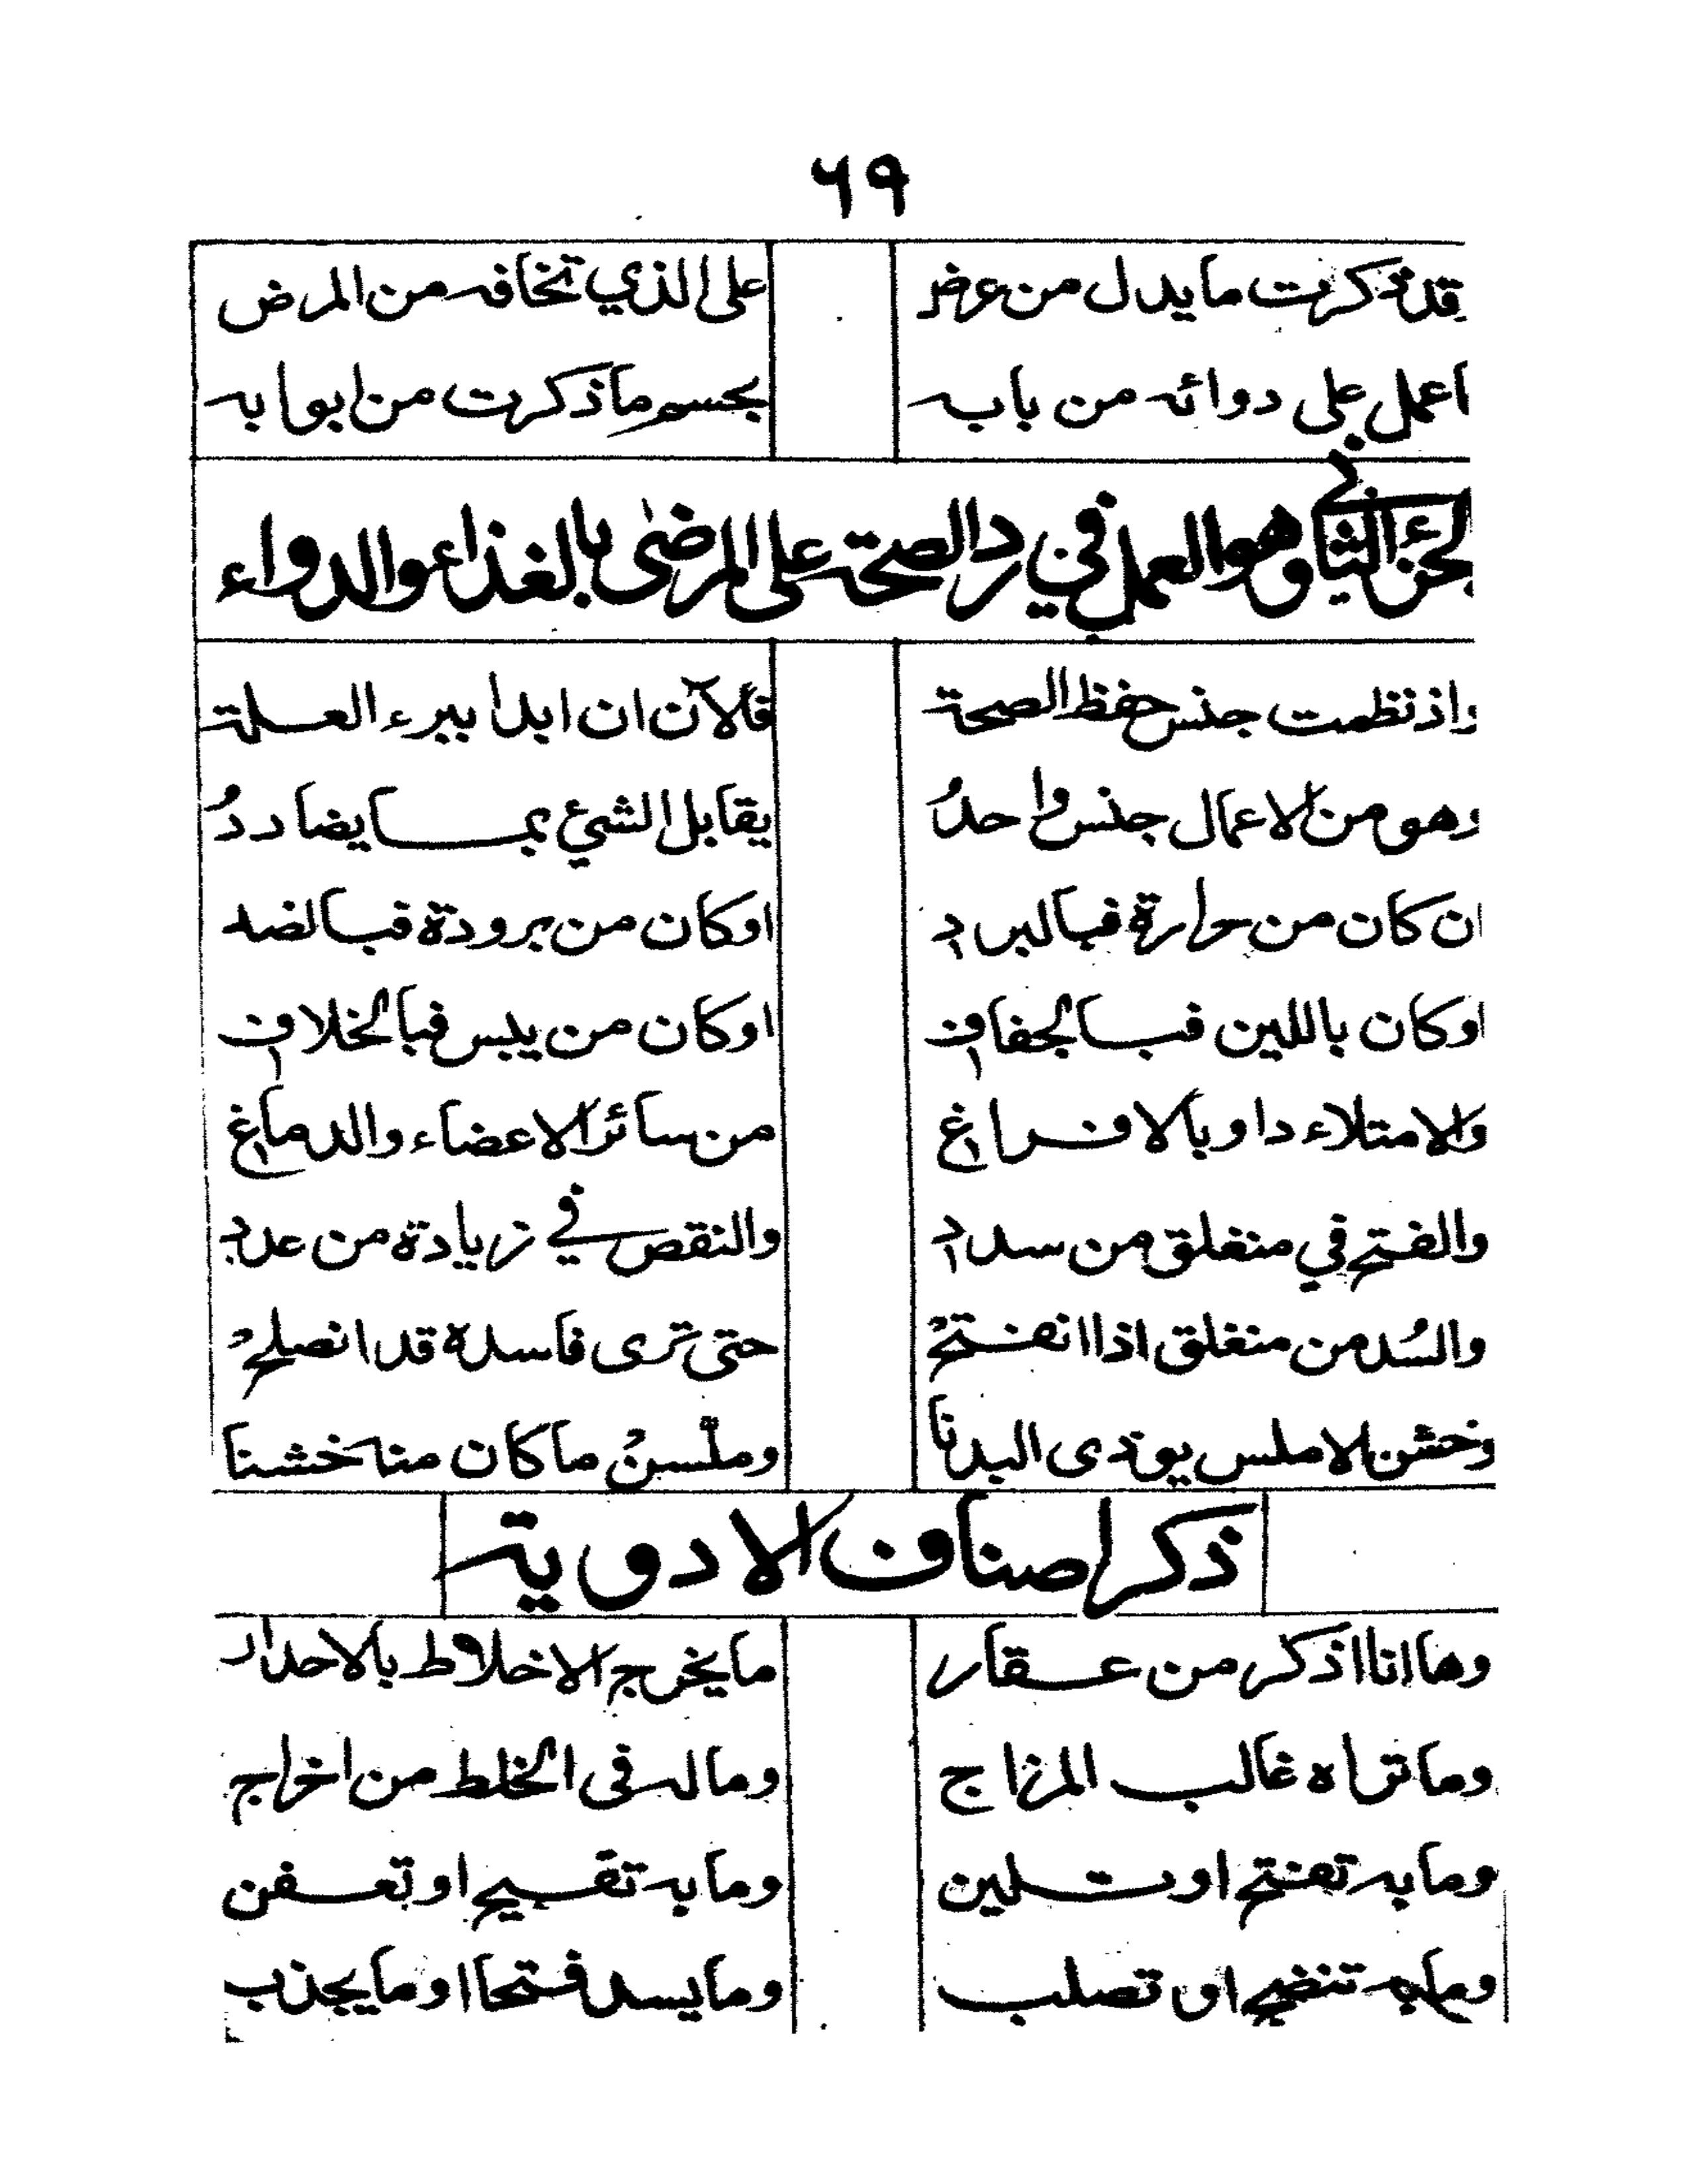 ٦٩
قد ذكرت ما يدل من عرض على الذي تخافه من المرض
اعمل على دوائه من بابه بحسب ما ذكرت من ابوابه
الجزء الثاني وهو العمل في رد الصحة على المرضى بالغذاء والدواء
واذ نظمت جنس حفظ الصحة فالآن ان ابدا ببرء العلة
وهو من الاعمال جنس واحدُ يقابل الشيء بما يضاددُ
ان كان من حرارة فبالبردِ او كان من برودة فبالضد
او كان باللين فبالجفافِ او كان من يبس فبالخلافِ
والامتلاء داو بالافراغِ من سائر الاعضاء والدماغِ
والفتح في منغلق من سددِ والنقص في زيادة من عددِ
والسُد من منغلق اذا انفتحْ حتى ترى فاسده قد انصلحْ
وخشن الاملس يوذى البدنا وملّسنْ ما كان منه خشنا
ذكر اصناف الادوية
وها انا اذكر من عقار ما يخرج الاخلاط بالاحدار
وما تراه غالب المزاج وما له فى الخلط من اخراج
وما به تفتح او تلين وما به تقيح او تعفن
وما به تنضج او تصلب وما يسد فتحا او ما يجذب